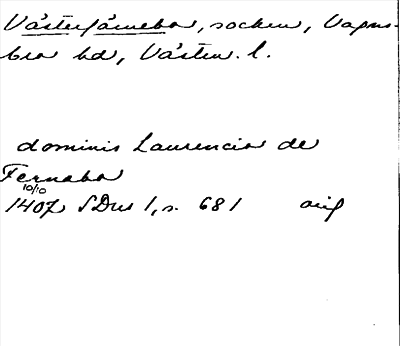 Västerfärnebo, socken, Vagns-
bro hd, Västm. l.
dominis Laurencio de
Fernabo
10/10
1407 SDns 1, s. 681 orig